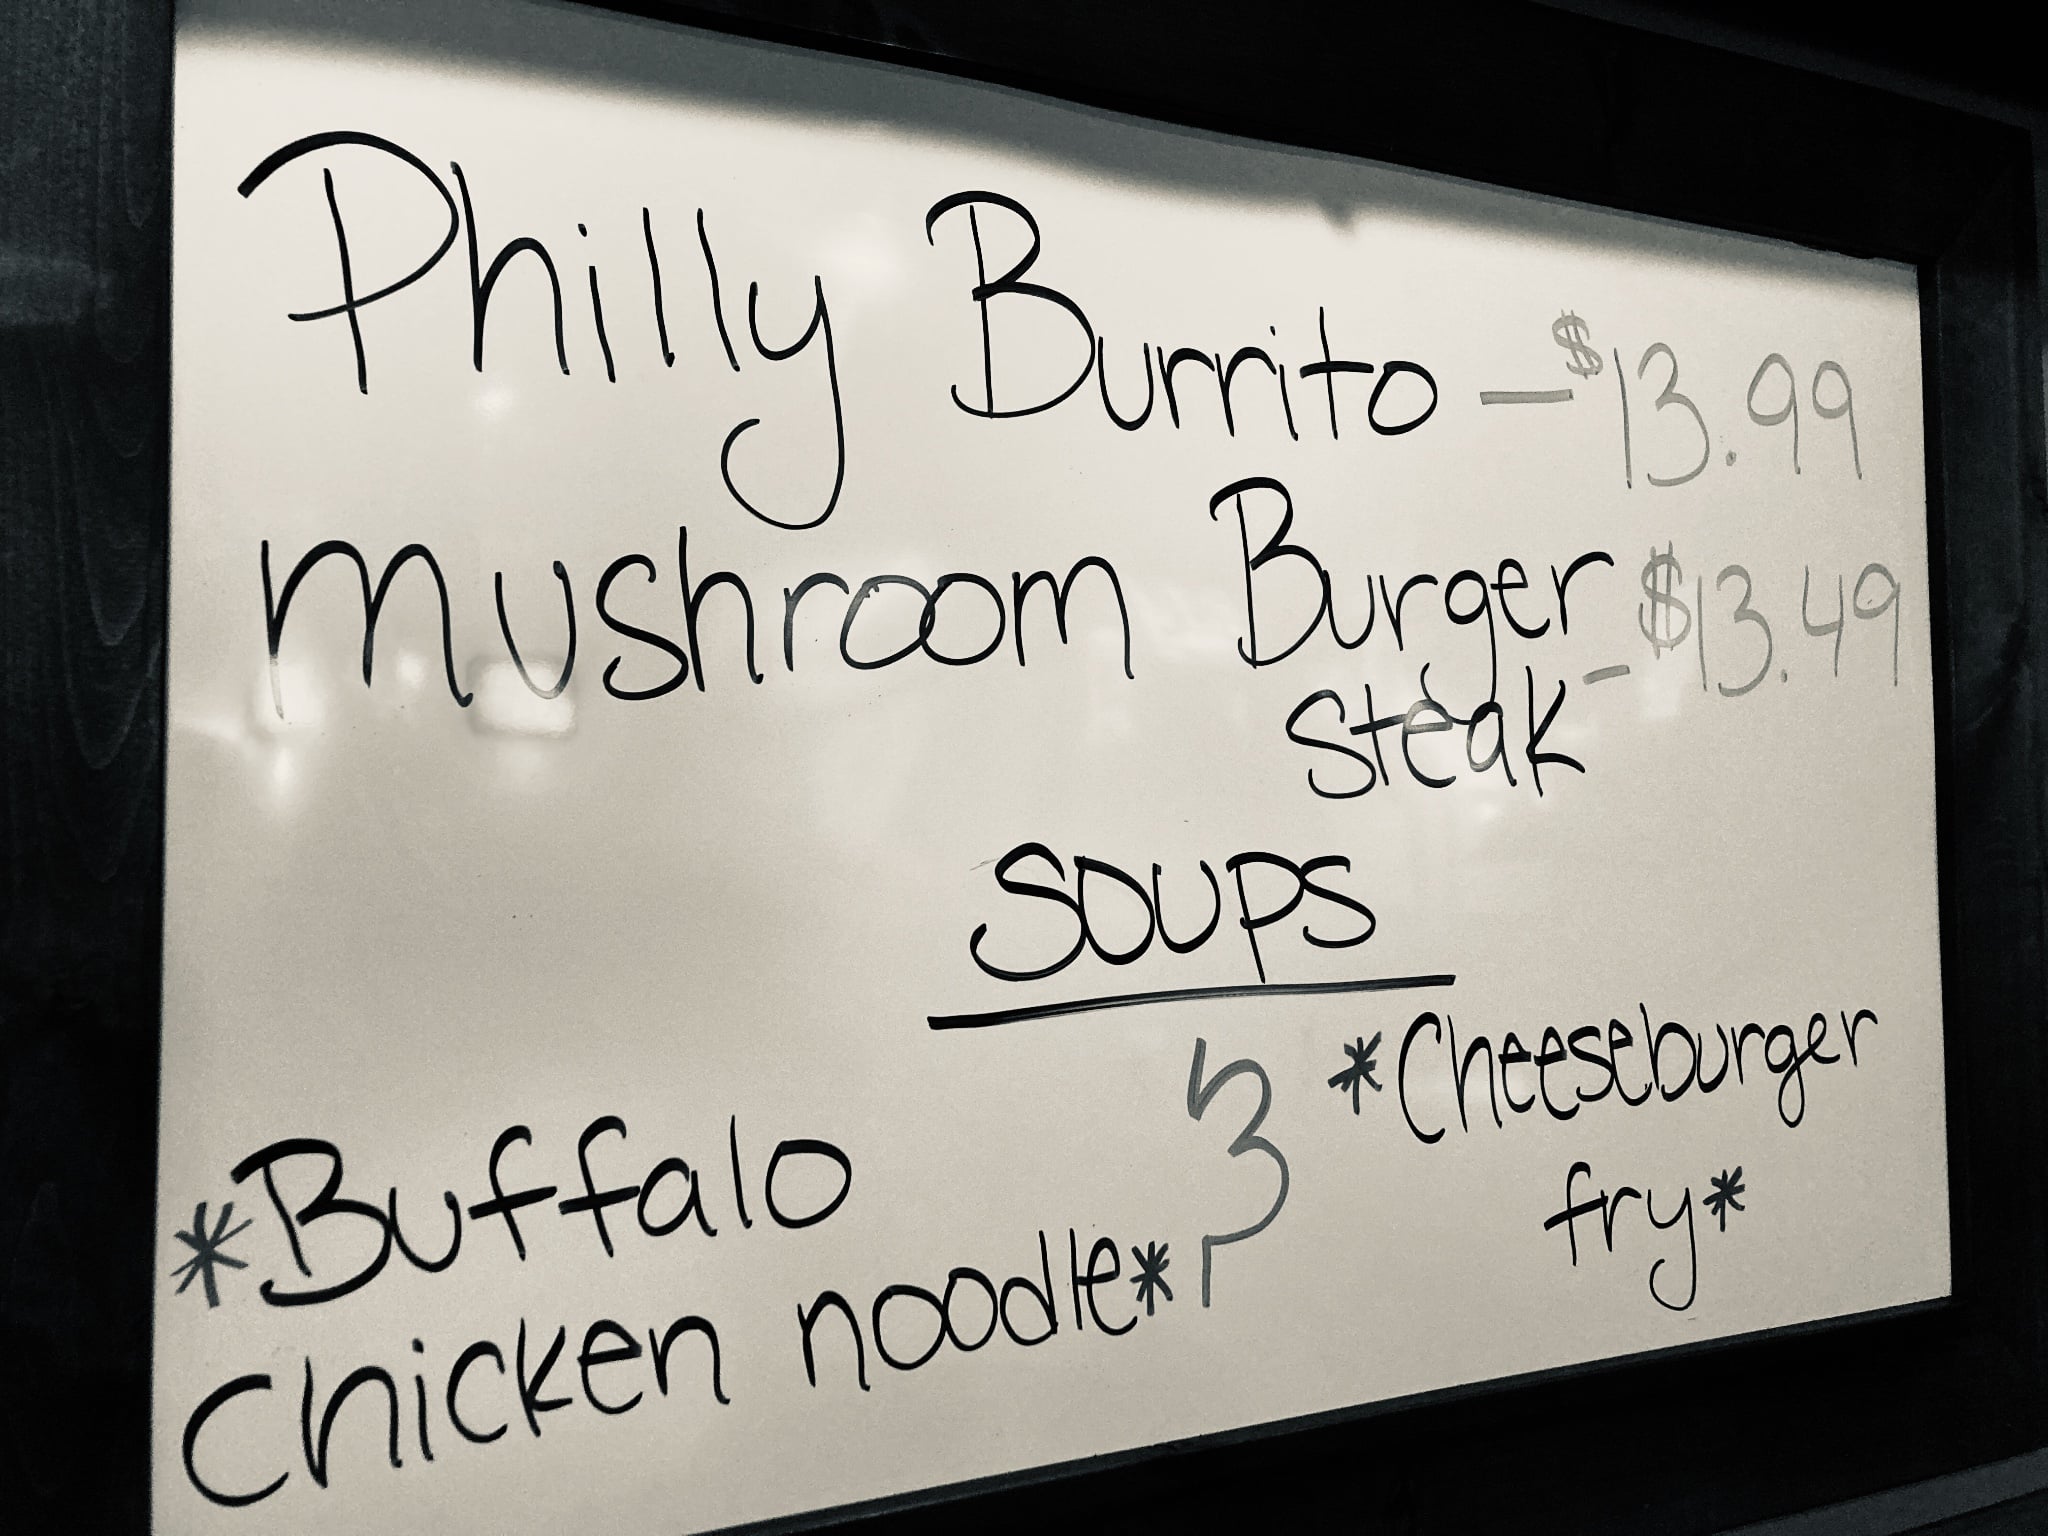 Philly Burrito - $13.99
Mushroom Burger
Steak - $13.49
Soups
*Buffalo
Chicken noodle*
*Cheeseburger
fry*